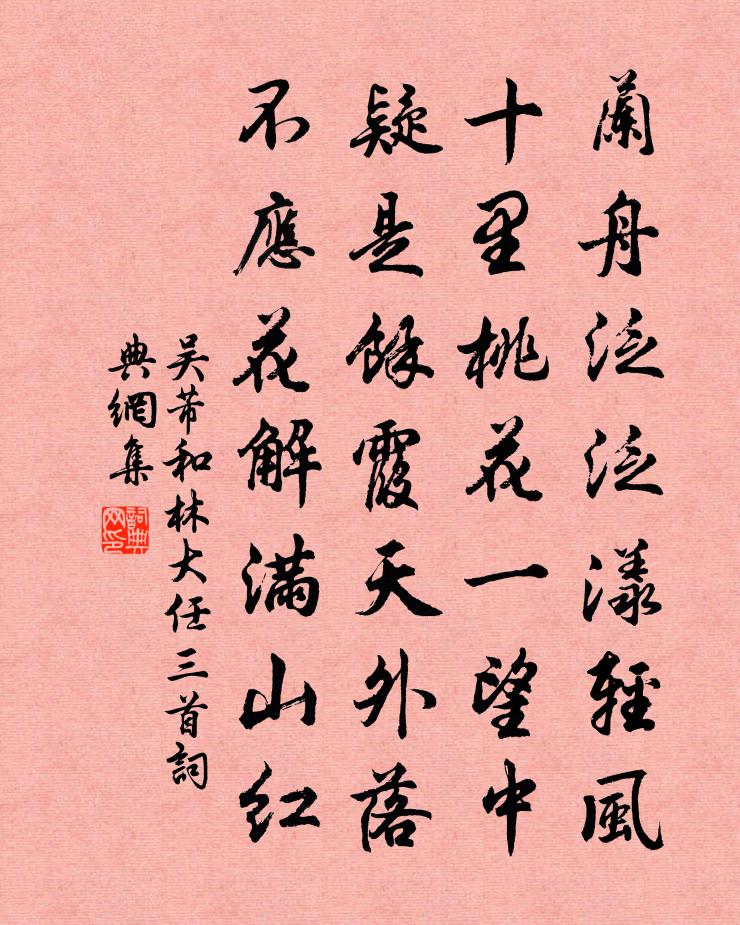 蘭舟泛泛漾輕風
十里桃花一望中
疑是餘霞天外落
不應花解滿山紅
吴芾和林大任三首詞
典網集
詞典
网印